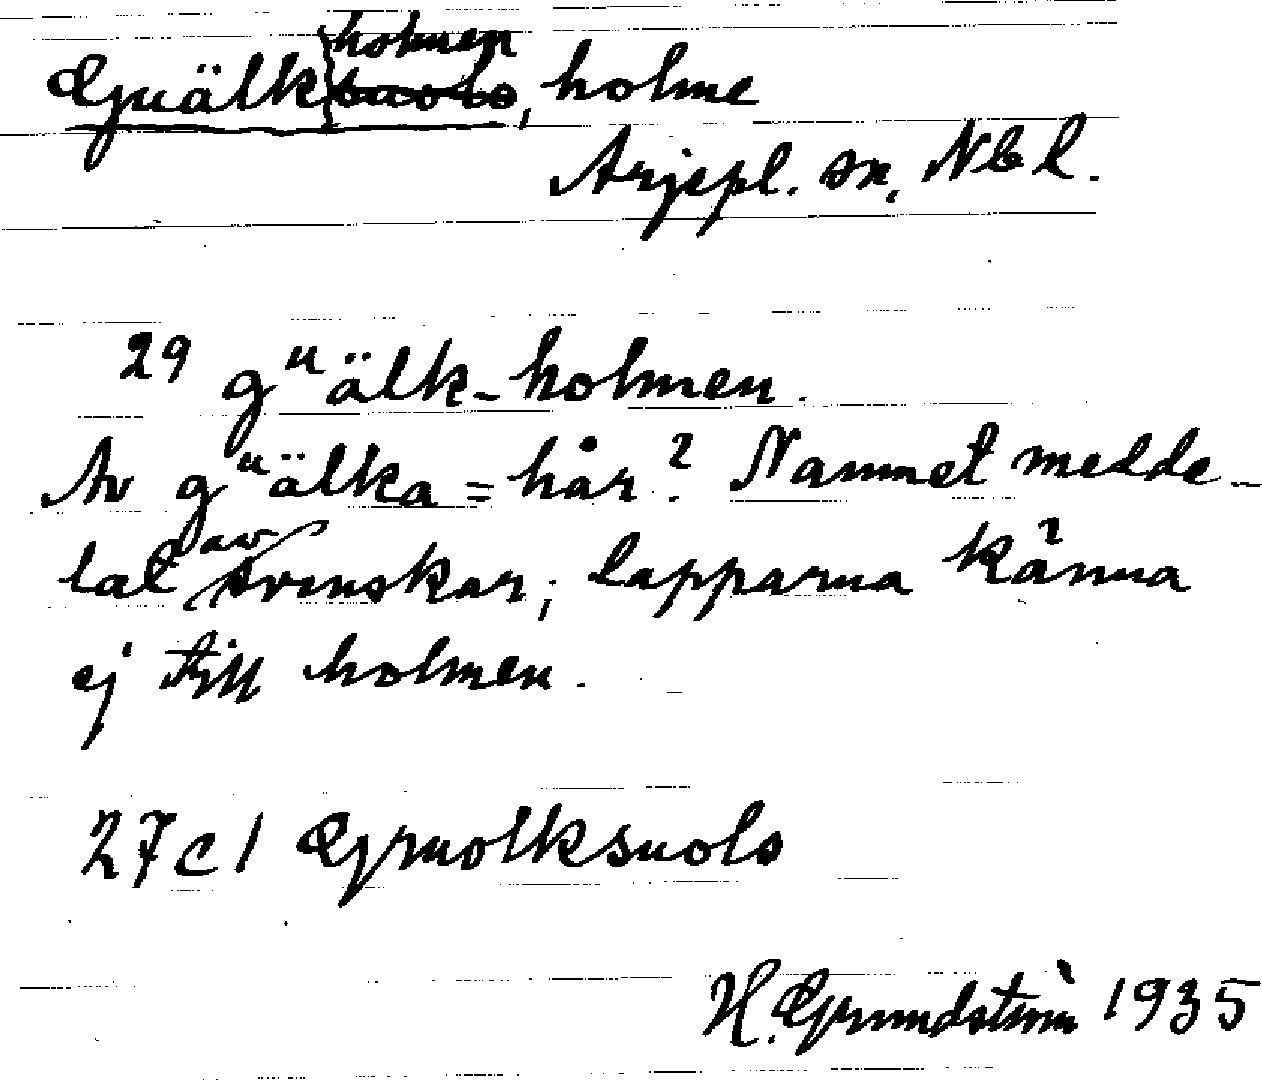 holmen
Guälksuolo, holme
Arjepl. sn, Nbl.
29 gᵘälk-holmen.
Av gᵘälka = hår? Namnet medde-
lat av svenskar; lapparna känna
ej till holmen.
27c1 Gruolksuolo
H. Grundström 1935